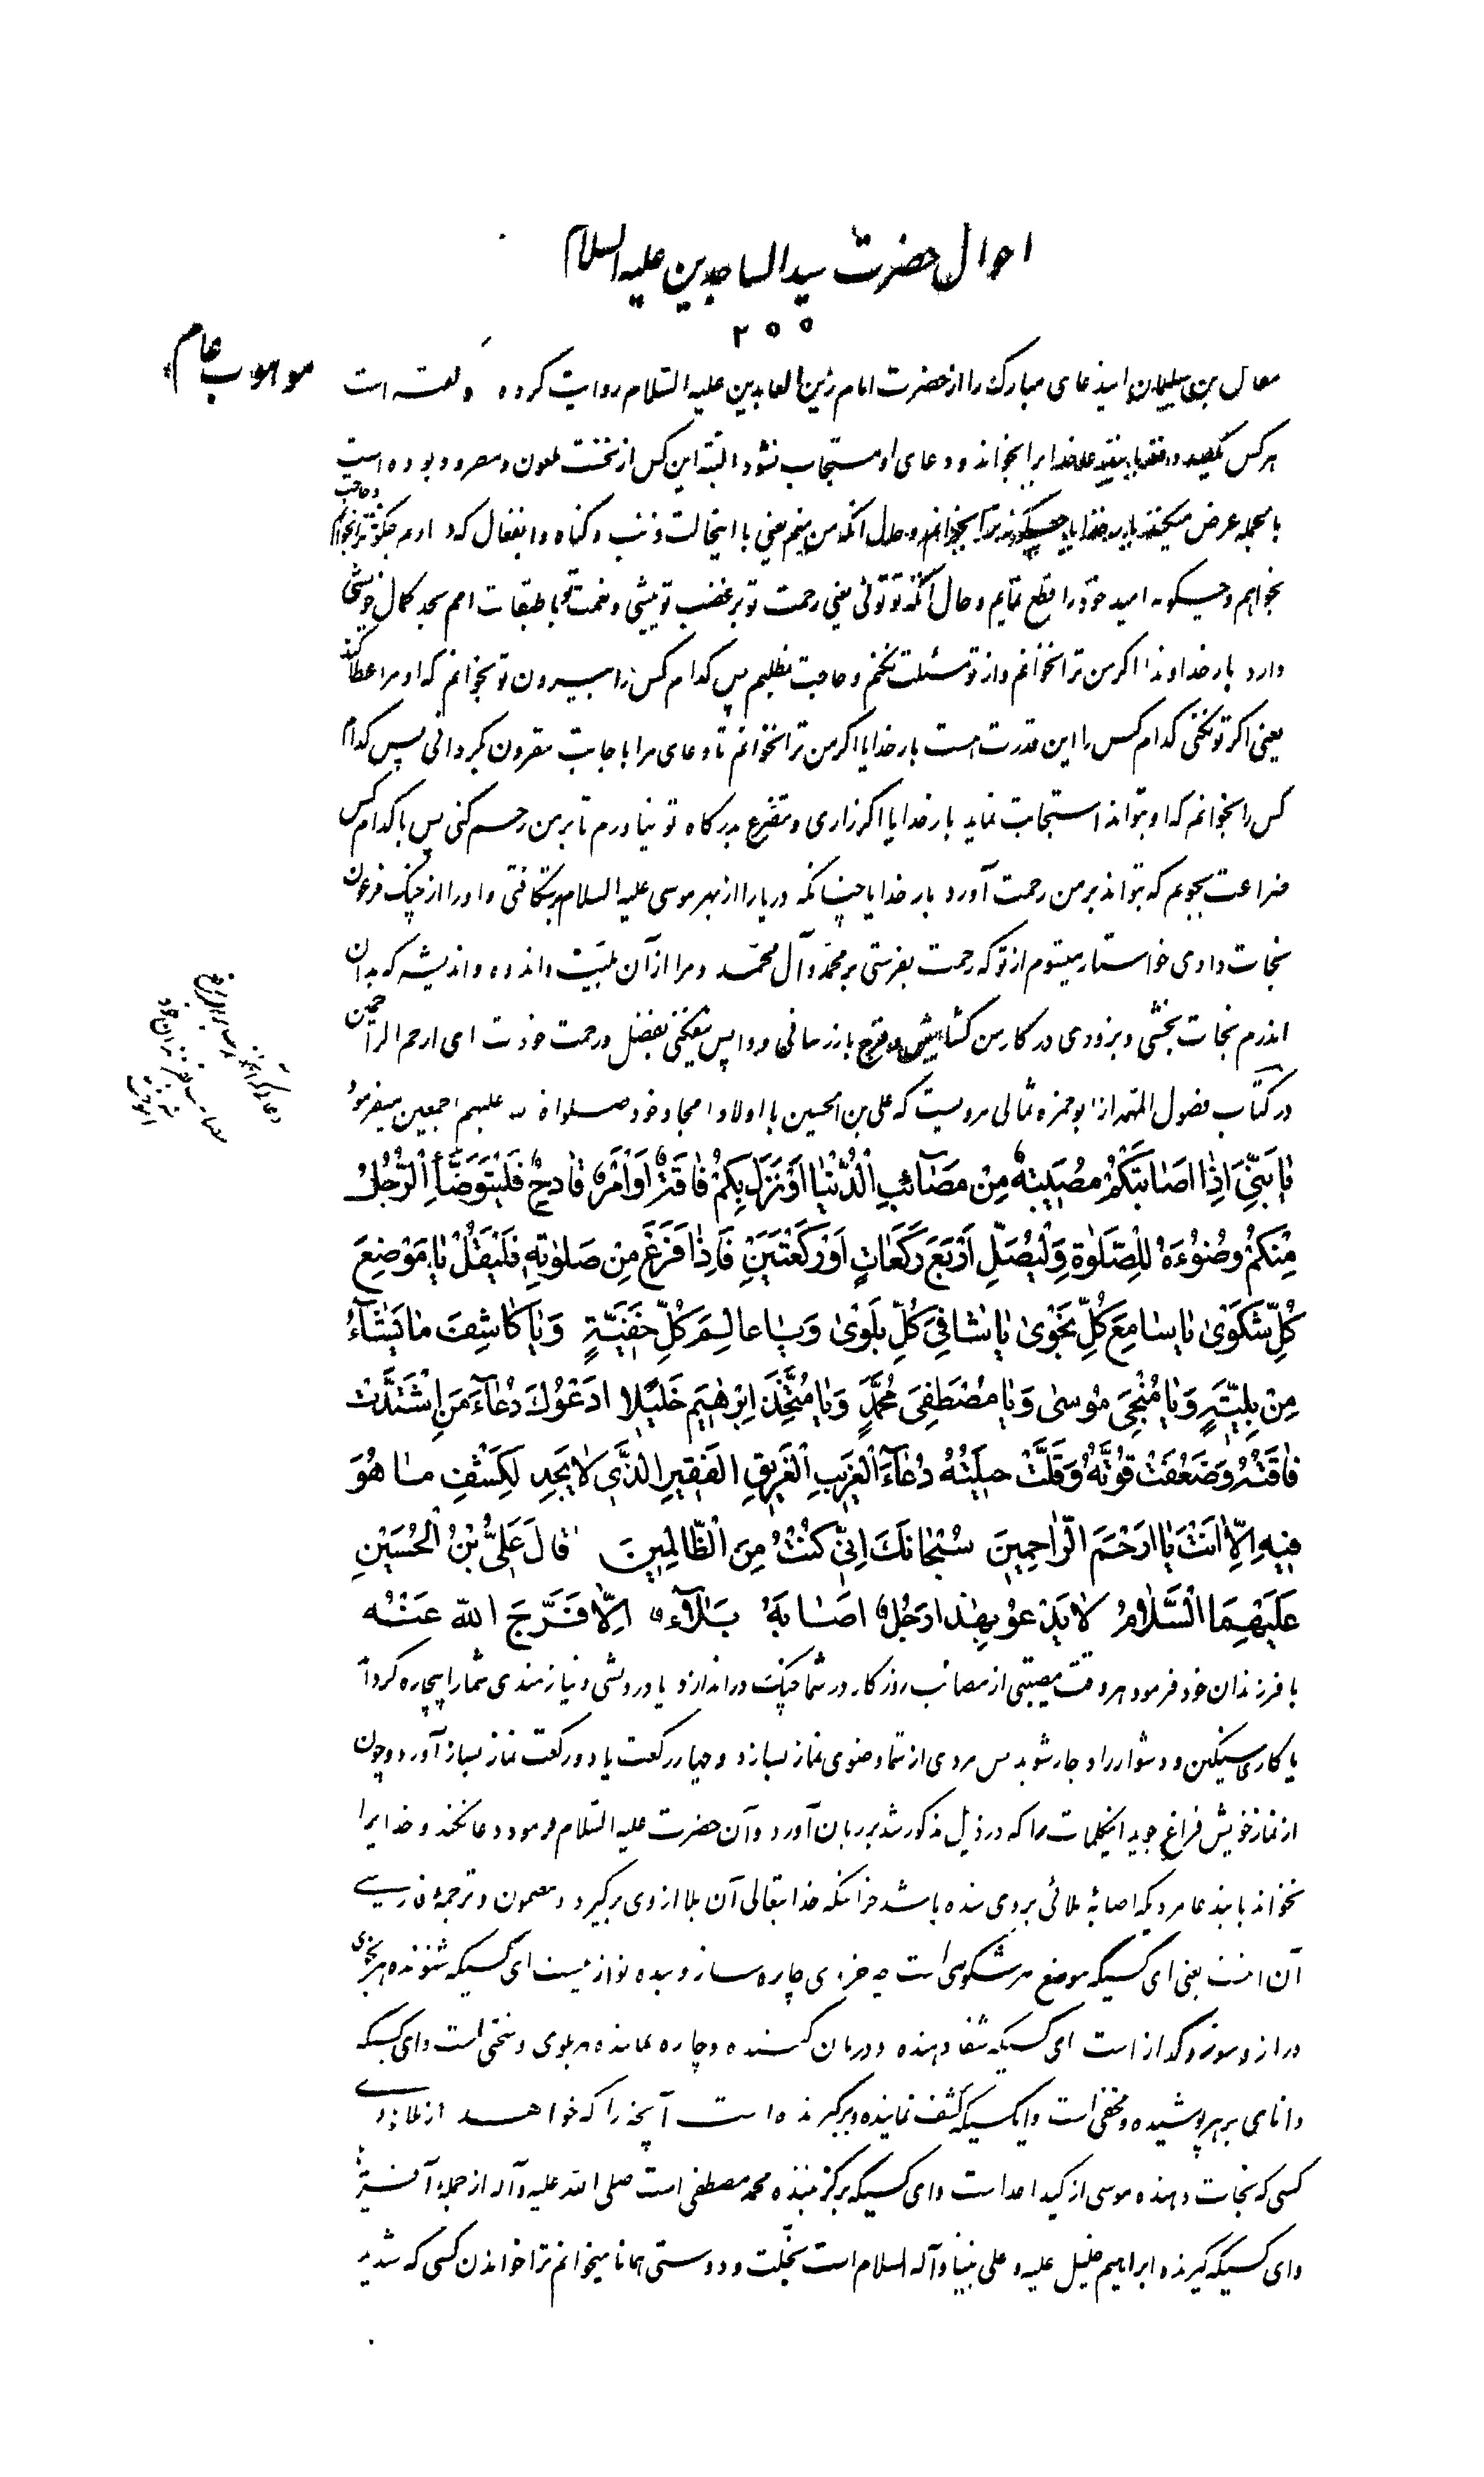 احوال حضرت سیدالساجدین علیه السلام
۲۵۵
موهوب عام
بن سلیمان ایندعای مبارک را از حضرت امام زین العابدین علیه السّلام روایت کرده و گفته است
هر کس خدایرا بخواند و دعای او مستجاب نشود البته این کس از نخست ملعون و مطرود بوده است
بالجمله عرض میکند بار خدایا چگونه ترا بخوانم و حال آنکه من منم یعنی با اینحالت ذنب و گناه و انفعال که دارم چگونه ترا بخوانم و حاجت
بخواهم و چگونه امید خود را قطع نمایم و حال آنکه تو توئی یعنی رحمت تو بر غضب تو بیشی و نعمت تو با طبقات امم بحد کمال خویشی
دارد بار خداوندا اگر من ترا نخوانم و از تو مسئلت نکنم و حاجت نطلبم پس کدام کس را بیرون تو بخوانم که او مرا عطا کند
یعنی اگر تو نکنی کدام کس را این قدرت است بار خدایا اگر من ترا نخوانم تا دعای مرا باجابت مقرون گردانی پس کدام
کس را بخوانم که او بتواند استجابت نماید بار خدایا اگر زاری و تضرع بدرگاه تو نیاورم تا بر من رحم کنی پس با کدام کس
ضراعت بجویم که بتواند بر من رحمت آورد بار خدایا چنانکه دریا را از بهر موسی علیه السلام بشکافتی و او را از چنگ فرعون
نجات دادی خواستار میشوم از تو که رحمت بفرستی بر محمد و آل محمّد و مرا از آن بلیّت و اندوه و اندیشه که بدان
اندرم نجات بخشی و بزودی در کار من گشایش و فرج باز رسانی و واپس نیفکنی بفضل و رحمت خودت ای ارحم الراحمین
در کتاب فصول المهمه از ابو حمزه ثمالی مرویست که علی بن الحسین با اولاد امجاد خود صلواة الله علیهم اجمعین میفرمود
یا بَنِیَّ اِذا اَصابَتْکُمْ مُصیبَةٌ مِنْ مَصآئِبِ الْدُّنْیا اَوْ نَزَلَ بِکُمْ فاقَةٌ اَوْ اَمْرٌ فادِحٌ فَلْیَتَوَضَّأِ الْرَّجُلُ
مِنْکُمْ وُضُوْءَهُ لِلْصَّلوٰةِ وَلْیُصَلِّ اَرْبَعَ رَکَعاتٍ اَوْ رَکْعَتَیَنِ فَاِذا فَرَغَ مِنْ صَلوٰتِهِ فَلْیَقُلْ یا مَوْضِعَ
کُلِّ شَکْوٰی یا سامِعَ کُلِّ نَجْوٰی یا شافِیَ کُلِّ بَلْوٰی وَ یا عالِمَ کُلِّ خَفِیَّةٍ وَیا کاشِفَ ما یَشآءُ
مِنْ بِلیَّةٍ وَیا مُنْجِیَ مُوسٰی وَیا مُصْطَفِیَ مُحَمَّدٍ وَیا مُتَّخِذَ اِبْرٰهیمَ خَلیٖلا اَدْعُوْكَ دُعآءَ مَنِ اِشْتَدَّتْ
فاقَتُهُ وَضَعُفَتْ قُوَّتُهُ وَقَلَّتْ حیٖلَتُهُ دُعآءَ الْغَریبِ الْغَریقِ الفَقیرِ الَّذی لا یَجِدُ لِکَشْفِ ما هُوَ
فیٖهِ اِلّا اَنْتَ یا اَرْحَمَ الرّاحِمیٖنَ سُبْحانَكَ اِنّی کُنْتُ مِنَ الْظّالِمیٖنَ قالَ عَلِیُّ بْنُ الْحُسَیْنِ
عَلَیْهِمَا الْسَّلامُ لا یَدْعُوْ بِهٰذا رَجُلٌ اَصابَهُ بَلآءٌ اِلّا فَرَّجَ اللهُ عَنْهُ
با فرزندان خود فرمود هر وقت مصیبتی از مصائب روزگار در شما چنگ دراندازد یا درویشی و نیازمندی شما را بیچاره گرداند
یا کاری سنگین و دشوار را دچار شوید پس مردی از شما وضوی نماز بسازد و چهار رکعت یا دو رکعت نماز بساز آورد و چون
از نماز خویش فراغ جوید اینکلمات را که در ذیل مذکور شد بر زبان آورد و آن حضرت علیه السّلام فرمود دعا نکند و خدایرا
نخواند بایندعا مردیکه اصابهٔ بلائی بروی شده باشد جز اینکه خدایتعالی آن بلا از وی برگیرد و مضمون و ترجمهٔ فارسی
آن اینست یعنی ای کسیکه موضع هر شکوهی است چه جز وی چاره ساز و بنده نواز نیست ای کسیکه شنونده هر نجوی
و راز و سوز و گداز است ای کسیکه شفا دهنده و درمان کننده و چاره نماینده هر بلوی و سختی است و ای کسیکه
دانای بر هر پوشیده و مخفی است و ایکسیکه کشف نماینده و برگیرنده است آنچه را که خواهد از بلا
کسی که نجات دهنده موسی از کید اعداست و ای کسیکه برگزیننده محمد مصطفی است صلی الله علیه و آله از جمله آفرینش
و ای کسیکه گیرنده ابراهیم خلیل علیه و علی نبینا و آله السلام است بخلّت و دوستی همانا میخوانم ترا خواندن کسی که شدید